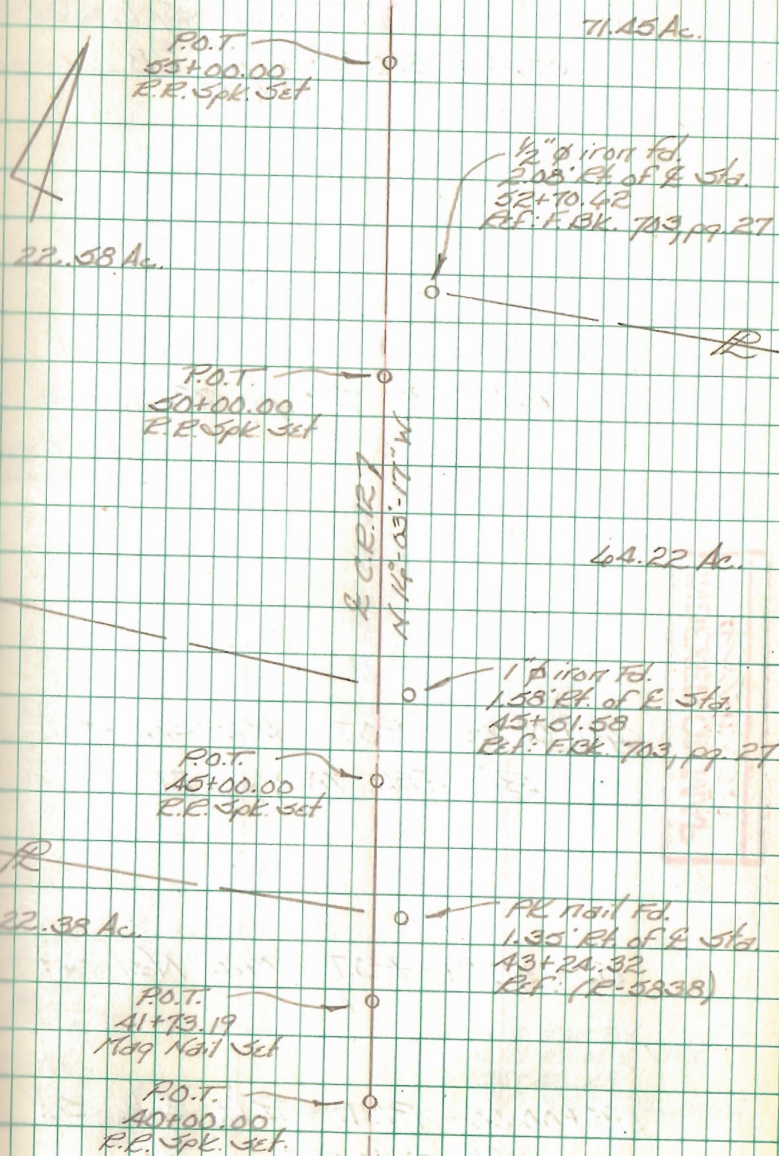 71.45 Ac.
P.O.T.
55+00.00
R.R. Spk. Set
1/2" ø iron fd.
2.08' Rt. of ℄ Sta.
52+70.42
Ref: F.Bk. 703, pg. 27
22.58 Ac.
PL
P.O.T.
50+00.00
R.R. Spk. Set
℄ C.R. 127
N 14°-03'-17" W
64.22 Ac.
1" ø iron Fd.
1.58' Rt. of ℄ Sta.
45+61.58
Ref: F.Bk. 703, pg. 27
P.O.T.
45+00.00
R.R. Spk. Set
PL
22.38 Ac.
PK nail Fd.
1.35' Rt. of ℄ Sta.
43+24.32
Ref: (R-5838)
P.O.T.
41+73.19
Mag Nail Set
P.O.T.
40+00.00
R.R. Spk. Set.